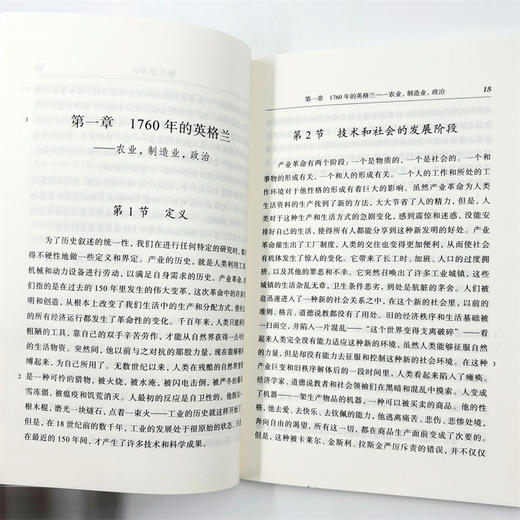 第一章 1760年的英格兰
——农业，制造业，政治
第1节 定义
为了历史叙述的统一性，我们在进行任何特定的研究时，都不
得不硬性地做一些定义和界定。产业的历史，就是人类利用工具、
机械和动力设备进行劳动，以满足自身需求的历史。产业革命，我
们指的是在过去的150年里发生的伟大变革，这次革命中的许多发
明和创造，从根本上改变了我们生活中的生产和分配方式，使我们
的所有经济运行都发生了革命性的变化。千百年来，人类只能利用
粗陋的工具，靠自己的双手辛苦劳作，才能从自然界获得一点可怜
的生活物资。突然间，他以前与之对抗的那股力量，现在能够被他
搏起来，为自己所用。无数世纪以来，人类在残酷的自然界面前只
是一种可怜的猎物，被火烧，被水淹，被闪电击倒，被严冬的暴风
雪冻僵，被瘟疫和饥荒消灭。人最初的反应是自卫性的。他削尖一
根木棍，磨光一块燧石，点着一束火——工业的历史就这样开始了。
但是，在18世纪前的数千年，工业的发展处于很原始的状态，只是
在最近的150年间，才产生了许多技术和科学成果。
1
2
第一章 1760年的英格兰——农业，制造业，政治 15
第2节 技术和社会的发展阶段
产业革命有两个阶段：一个是物质的，一个是社会的。一个和
事物的形成有关，一个和人的形成有关。一个人的工作和所处的工
作环境对于他性格的形成有着巨大的影响。虽然产业革命为人类
生活资料的生产找到了新的方法，大大节省了人的精力，但是，人
类对于这种生产和生活方式的急剧变化，感到震惊和迷惑，没能安
排好自己的生活，使得所有人都能分享到这种新发明的好处。产业
革命催生出了工厂制度，人类的交往也变得更加便利，从而使社会
有机体发生了惊人的变化。它带来了长工时、加班、人口的过度拥
挤，以及其他的罪恶和不幸。它突然召唤出了许多工业城镇，这些
城镇的生活杂乱无章，卫生条件恶劣，到处是肮脏的茅舍。人们被
迫迅速进入了一种新的社会关系之中，在这个新的社会里，以前的
准则、格言、道德说教都没有了效用。旧的经济秩序和生活基础被
一扫而空，并陷入一片混乱——“这个世界变得支离破碎”——
看起来人类完全没有能力适应这种新的环境。虽然人类能够征服自
然，但是却没有能力去征服和控制这种新的社会环境。在这种大
产业巨变和旧秩序解体后的一段时间里，人类似乎陷入了瘫痪。
经济学家、道德说教者和社会领袖们在黑暗和混乱中摸索。人变成
了机器——一架生产物品的机器，一种可以被买卖的商品。他的性
格，他去爱、去快乐、去钦佩的能力，他逃离痛苦、悲伤、恐惧、悲哀，
奔向自由的渴望，所有这一切，都在商品生产面前变成了次要的。
然而，这种被卡莱尔、金斯利、拉斯金严厉斥责的错误，并不仅仅
3